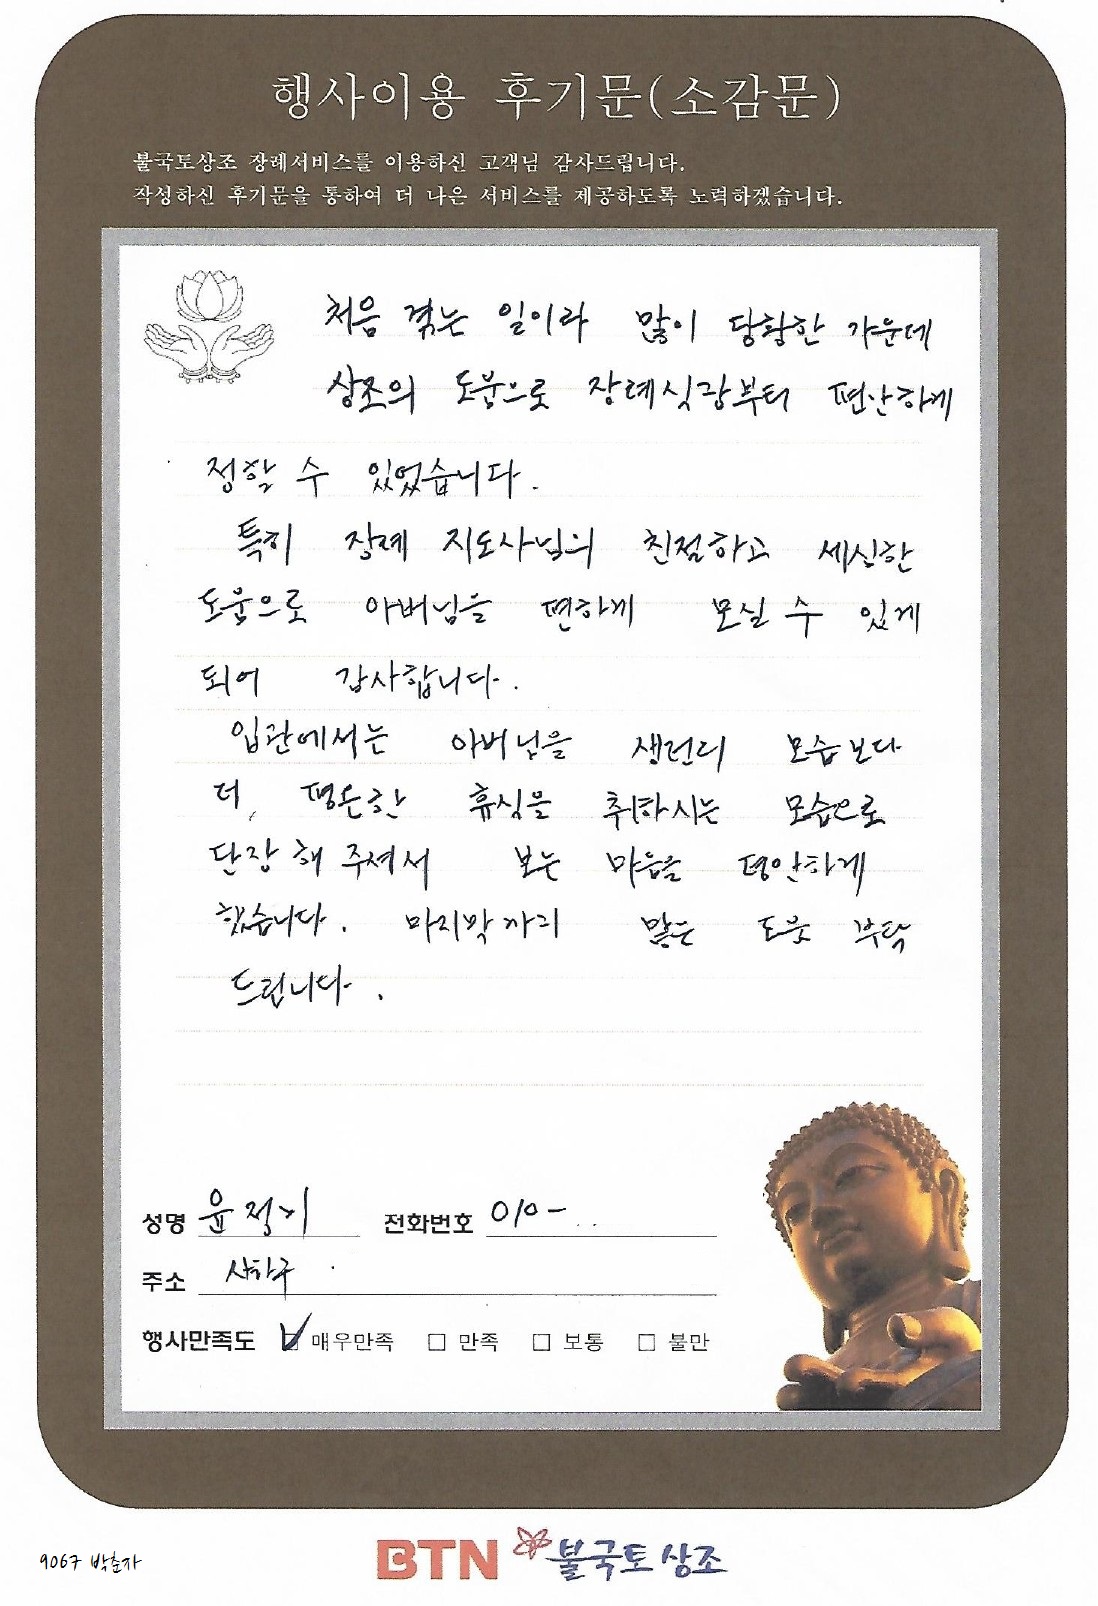 행사이용 후기문(소감문)
불국토상조 장례서비스를 이용하신 고객님 감사드립니다.
작성하신 후기문을 통하여 더 나은 서비스를 제공하도록 노력하겠습니다.
처음 겪는 일이라 많이 당황한 가운데
상조의 도움으로 장례식장부터 편안하게
정할 수 있었습니다.
특히 장례 지도사님의 친절하고 세심한
도움으로 아버님을 편하게 모실 수 있게
되어 감사합니다.
입관에서는 아버님을 생전의 모습보다
더, 평온한 휴식을 취하시는 모습으로
단장해 주셔서 보는 마음을 평안하게
했습니다. 마지막까지 많은 도움 부탁
드립니다.
성명 윤정기 전화번호 010-
주소 사하구
행사만족도 ☑ 매우만족 □ 만족 □ 보통 □ 불만
BTN 불국토상조
9067 박춘자